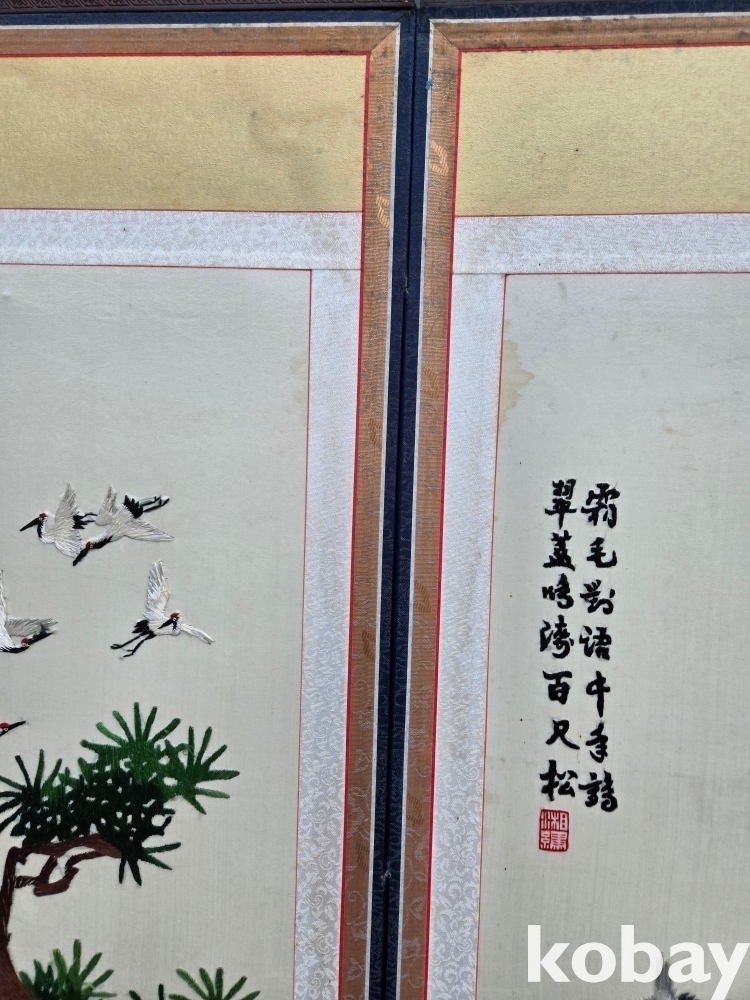 霜毛對語千年鶴
翠蓋鳴濤百尺松
kobay